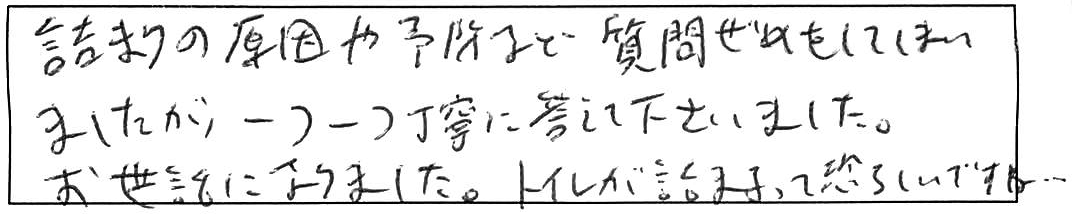 詰まりの原因や予防など質問ぜめをしてしまい
ましたが、一つ一つ丁寧に答えて下さいました。
お世話になりました。トイレが詰まるって恐ろしいですね…